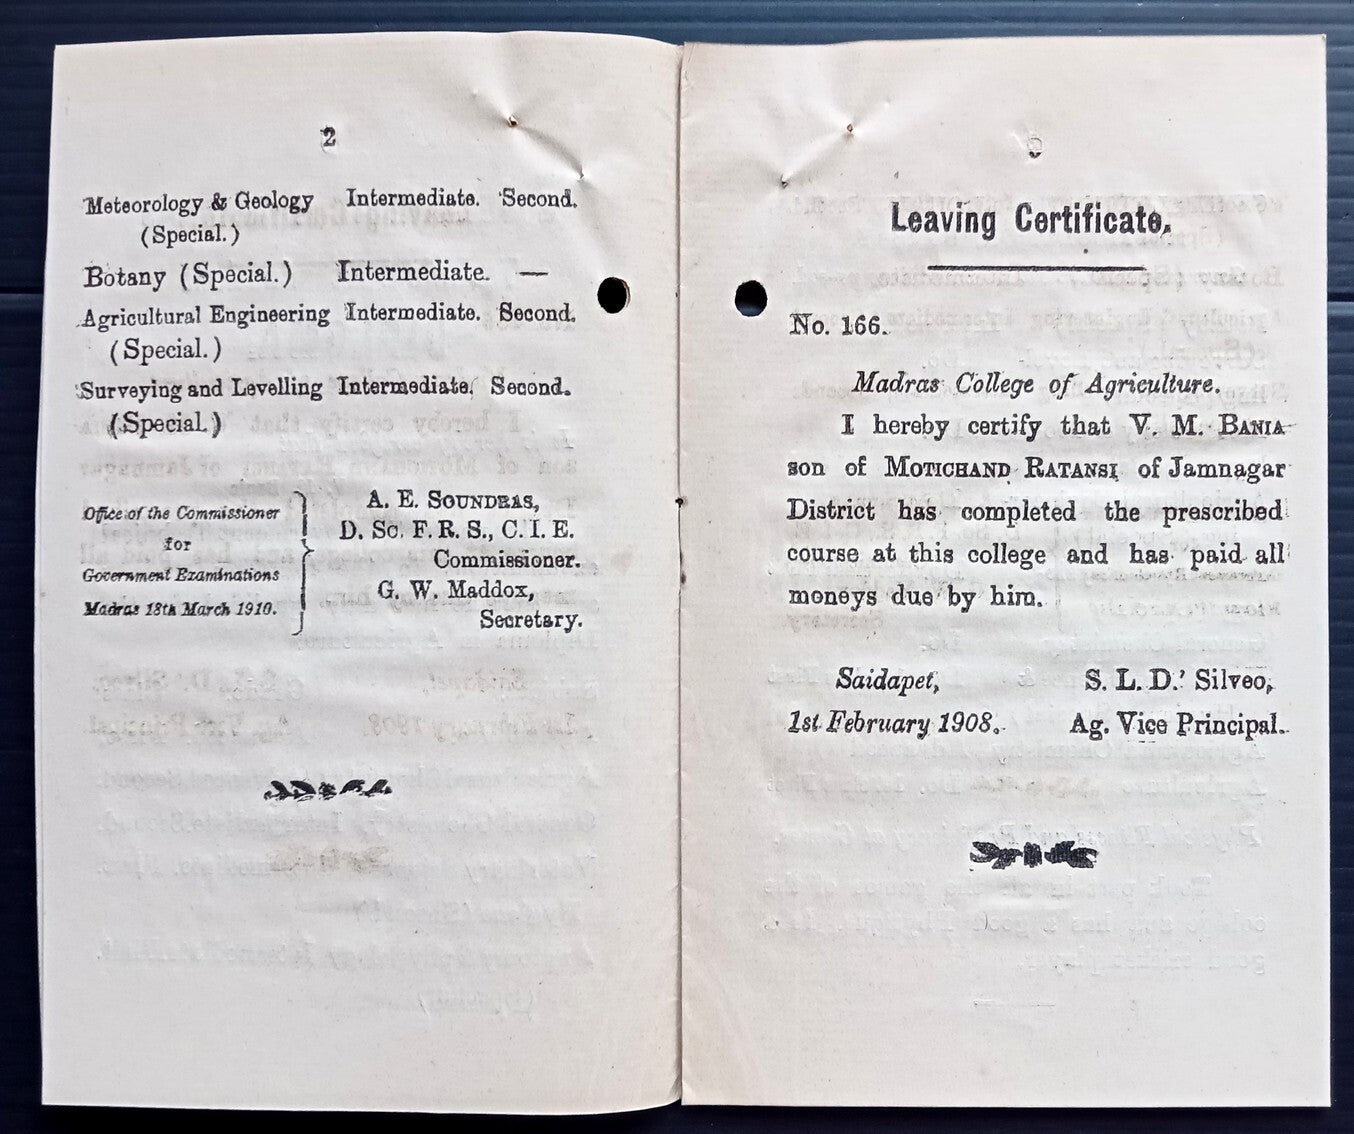 2
Meteorology & Geology Intermediate. Second.
(Special.)
Botany (Special.) Intermediate. —
Agricultural Engineering Intermediate. Second.
(Special.)
Surveying and Levelling Intermediate. Second.
(Special.)
Office of the Commissioner
for
Government Examinations
Madras 18th March 1910.
A. E. SOUNDRAS,
D. Sc. F. R. S., C. I. E.
Commissioner.
G. W. Maddox,
Secretary.
Leaving Certificate.
No. 166.
Madras College of Agriculture.
I hereby certify that V. M. BANIA
son of MOTICHAND RATANSI of Jamnagar
District has completed the prescribed
course at this college and has paid all
moneys due by him.
Saidapet,
1st February 1908.
S. L. D.' Silveo,
Ag. Vice Principal.